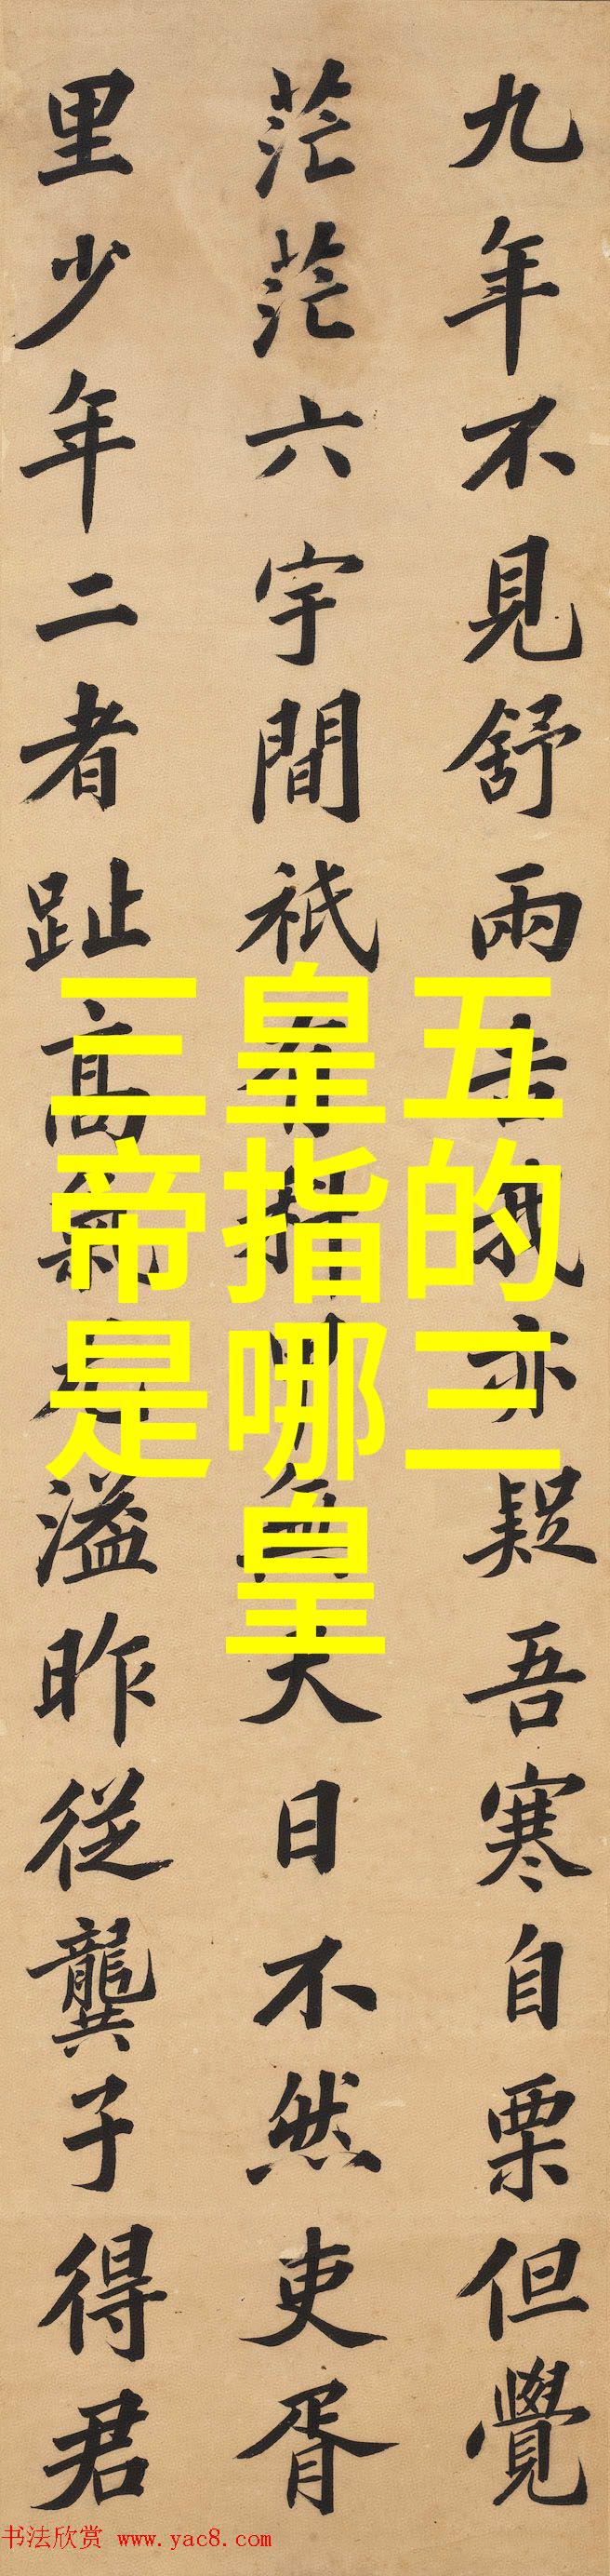 九年不見舒雨我亦疑吾寒自栗但覺
茫茫六宇間祇有大日不然吏胥
里少年二者趾高氣溢昨從龔子得君
三皇五
帝指的
是哪三
皇
书法欣赏 www.yac8.com